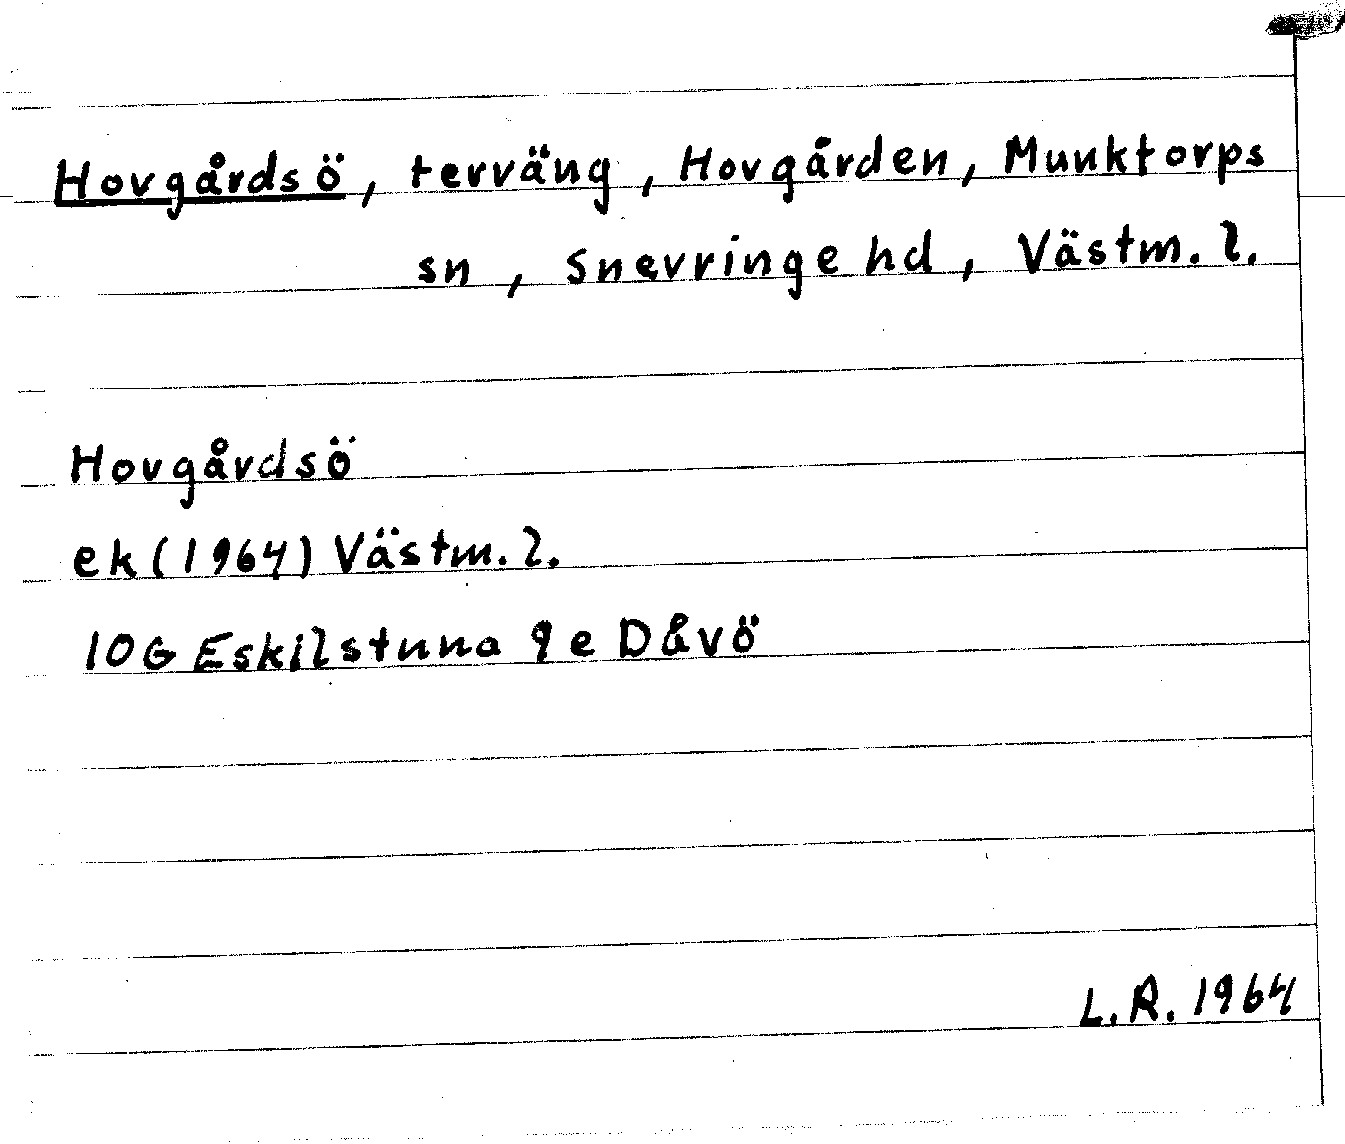 Hovgårdsö, terräng, Hovgården, Munktorps
sn, Snevringe hd, Västm. l.
Hovgårdsö
ek (1964) Västm. l.
10G Eskilstuna 9e Dåvö
L.R. 1964